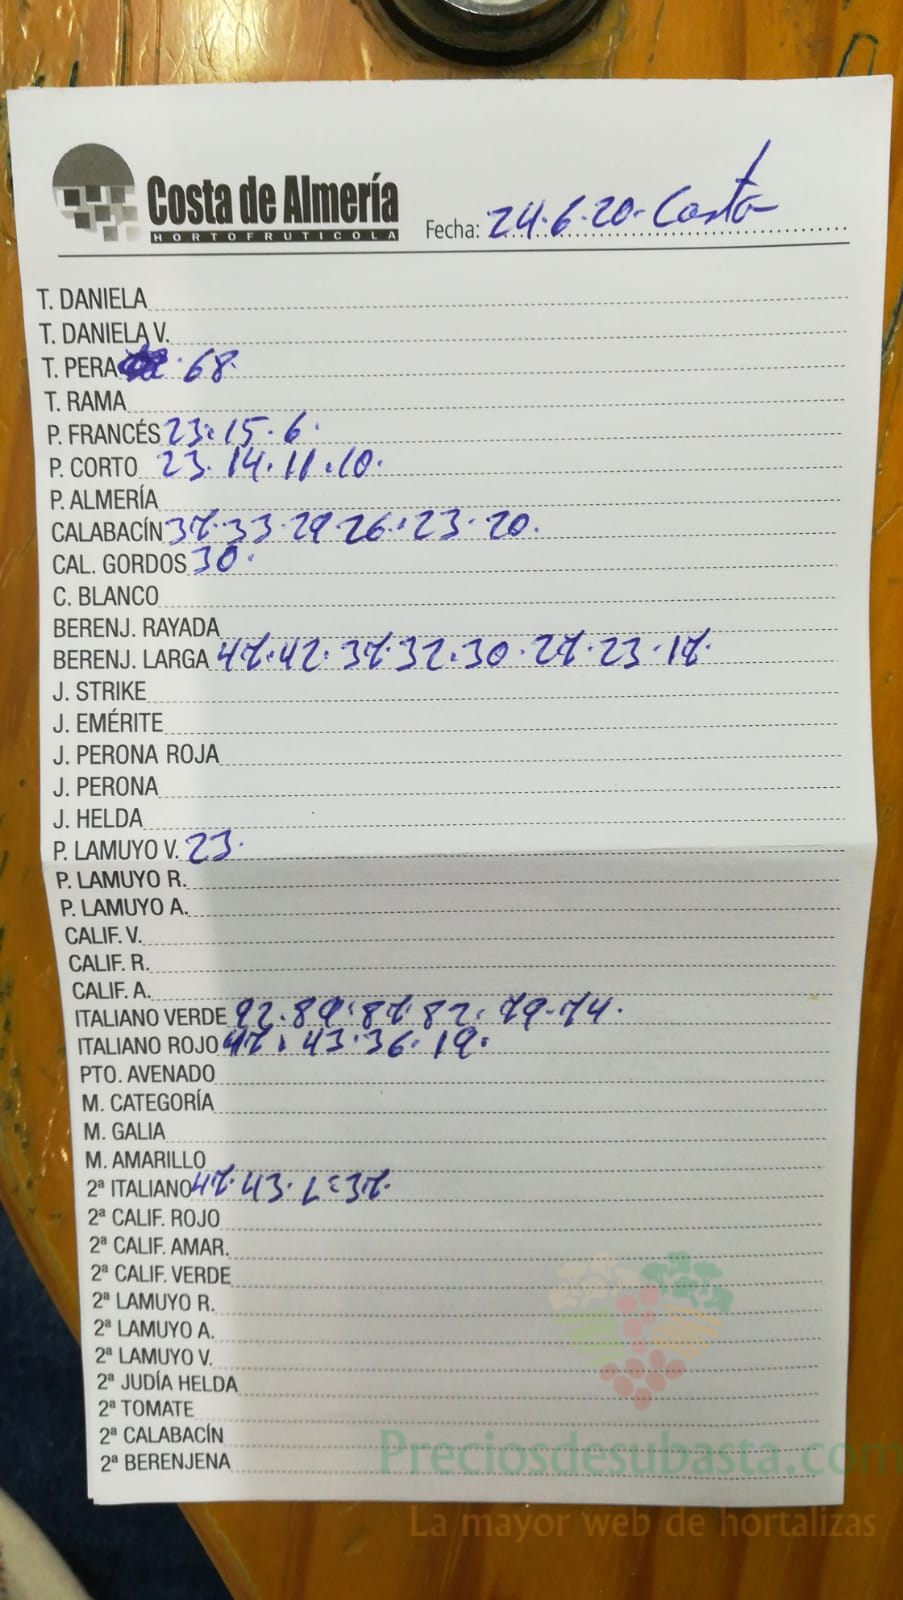 Costa de Almería
HORTOFRUTICOLA
Fecha: 24.6.20. Costa
T. DANIELA
T. DANIELA V.
T. PERA 68.
T. RAMA
P. FRANCÉS 23. 15. 6.
P. CORTO 23. 14. 11. 10.
P. ALMERÍA
CALABACÍN 37. 33. 29 26. 23. 20.
CAL. GORDOS 30.
C. BLANCO
BERENJ. RAYADA
BERENJ. LARGA 47. 42. 37. 32. 30. 27. 23. 17.
J. STRIKE
J. EMÉRITE
J. PERONA ROJA
J. PERONA
J. HELDA
P. LAMUYO V. 23.
P. LAMUYO R.
P. LAMUYO A.
CALIF. V.
CALIF. R.
CALIF. A.
ITALIANO VERDE 92. 89. 87. 82. 79. 74.
ITALIANO ROJO 47. 43. 36. 19.
PTO. AVENADO
M. CATEGORÍA
M. GALIA
M. AMARILLO
2ª ITALIANO 47. 43. L=37.
2ª CALIF. ROJO
2ª CALIF. AMAR.
2ª CALIF. VERDE
2ª LAMUYO R.
2ª LAMUYO A.
2ª LAMUYO V.
2ª JUDÍA HELDA
2ª TOMATE
2ª CALABACÍN
2ª BERENJENA
Preciosdesubasta.com
La mayor web de hortalizas